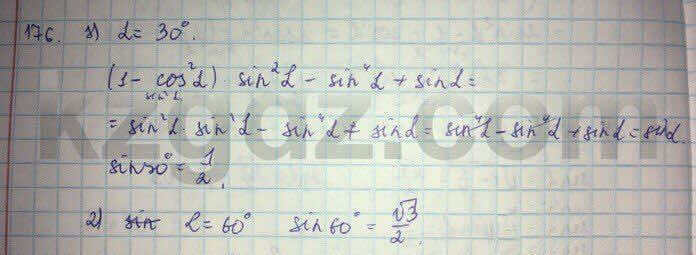 176. 1) α = 30°.
(1 - cos²α) · sin²α - sin⁴α + sinα =
= sin²α · sin²α - sin⁴α + sinα = sin⁴α - sin⁴α + sinα = sinα.
sin30° = 1/2.
2) α = 60° sin60° = √3/2.
kzgdz.com